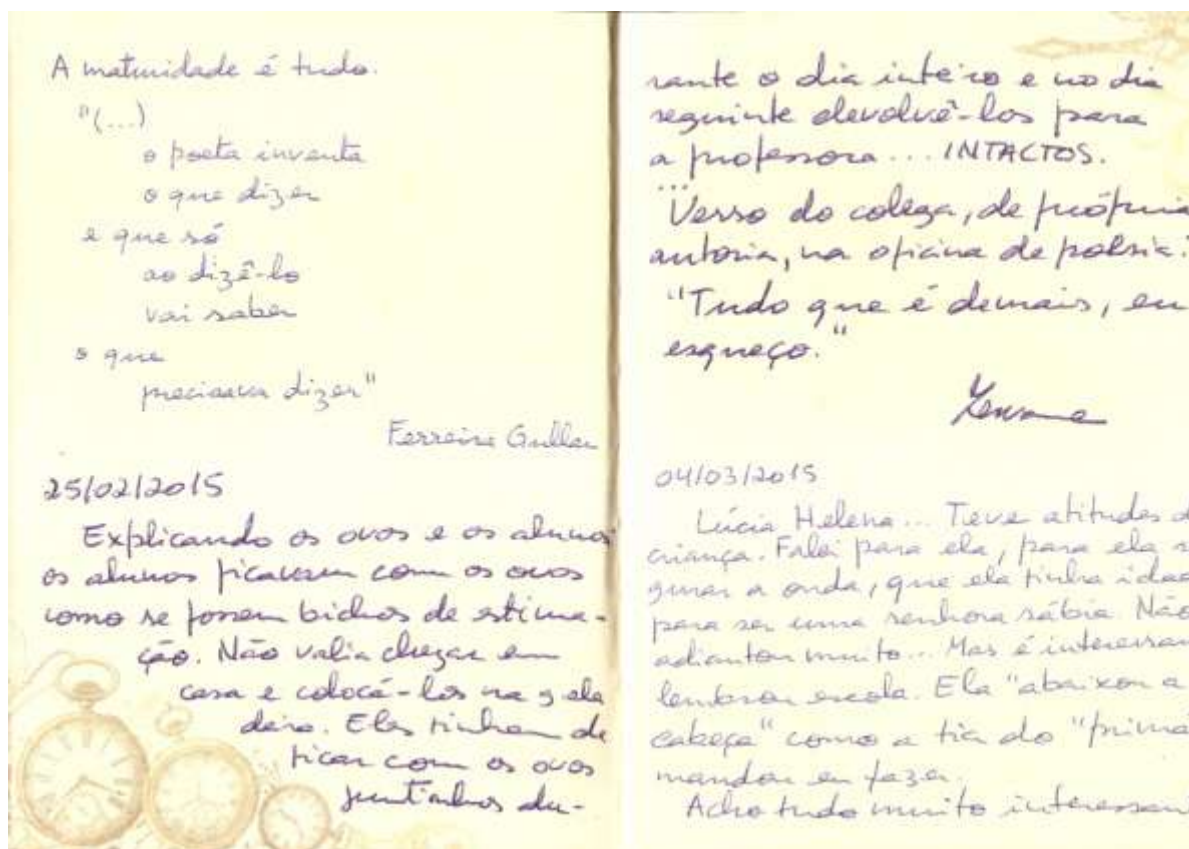 A maturidade é tudo.
"(...)
o poeta inventa
o que dizer
e que só
ao dizê-lo
vai saber
o que
precisava dizer"
Ferreira Gullar
25/02/2015
Explicando os ovos e os alunos
os alunos ficavam com os ovos
como se fossem bichos de estima-
ção. Não valia chegar em
casa e colocá-los na gela
deira. Eles tinham de
ficar com os ovos
juntinhos du-
rante o dia inteiro e no dia
seguinte devolvê-los para
a professora... INTACTOS.
...
Verso do colega, de própria
autoria, na oficina de poesia:
"Tudo que é demais, eu
esqueço."
04/03/2015
Lúcia Helena... Teve atitudes d
criança. Falei para ela, para ela s
gurar a onda, que ela tinha idad
para ser uma senhora sábia. Não
adiantou muito... Mas é interessan
lembrou escola. Ela "abaixou a
cabeça" como a tia do "prima
mandou eu fazer.
Acho tudo muito interessan